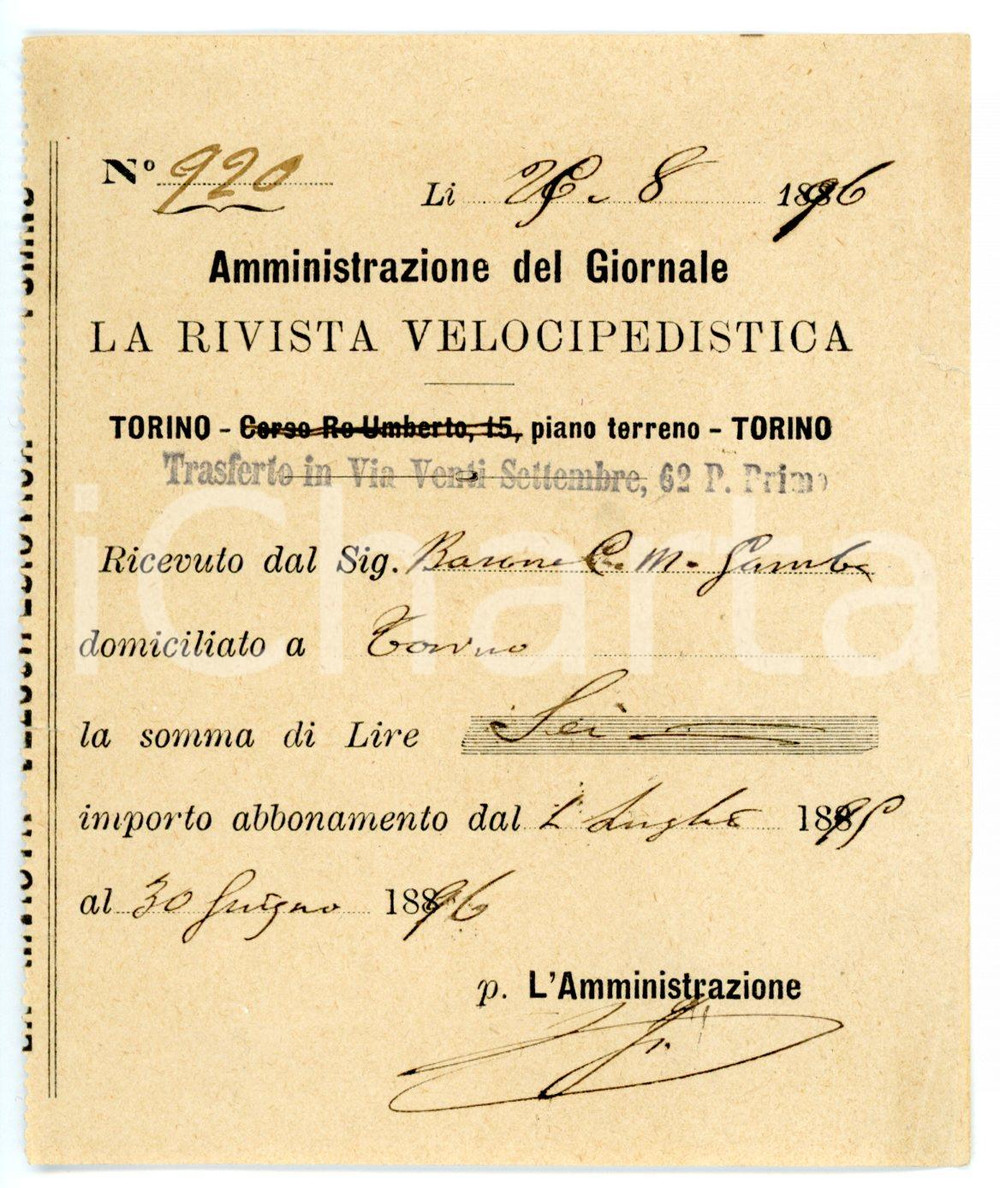 Nº 920
Li 26. 8 1896
Amministrazione del Giornale
LA RIVISTA VELOCIPEDISTICA
TORINO - Corso Re Umberto, 15, piano terreno - TORINO
Trasferto in Via Venti Settembre, 62 P. Primo
Ricevuto dal Sig. Barone C. M. Gamba
domiciliato a Torino
la somma di Lire Sei
importo abbonamento dal 1° Luglio 1895
al 30 Giugno 1896
p. L'Amministrazione
iCharta